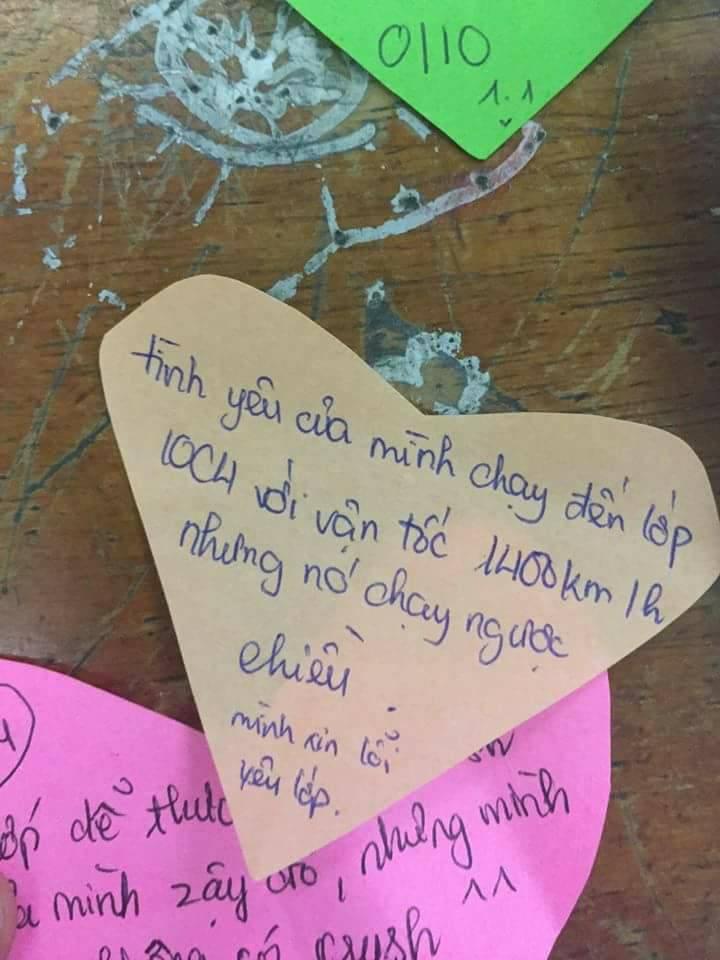 0110
1.1
tình yêu của mình chạy đến lớp
10C4 với vận tốc 1400km/h
nhưng nó chạy ngược
chiều.
mình xin lỗi
yêu lớp.
để
nhưng mình
mình zậy
có crush ^^